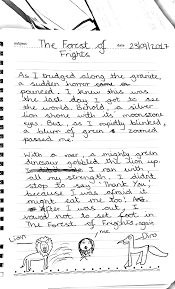 The Forest of Frights
date 23/09/2017
As I trudged along the granite,
a sudden horror came
poured. I knew this was
the last day I got to see
the world. Behold, a silver
lion shone with its moonstone
eyes. But, as I rapidly blinked
a blur of green zoomed
passed me.
With a roar, a mighty green
dinosaur gobbled the lion up.
I ran with
all my strength. I didn't
stop to say "Thank You",
because I was afraid it
might eat me too!
After I was out, I
vowed not to set foot in
The Forest of Frights, again
Lion
me
Dino